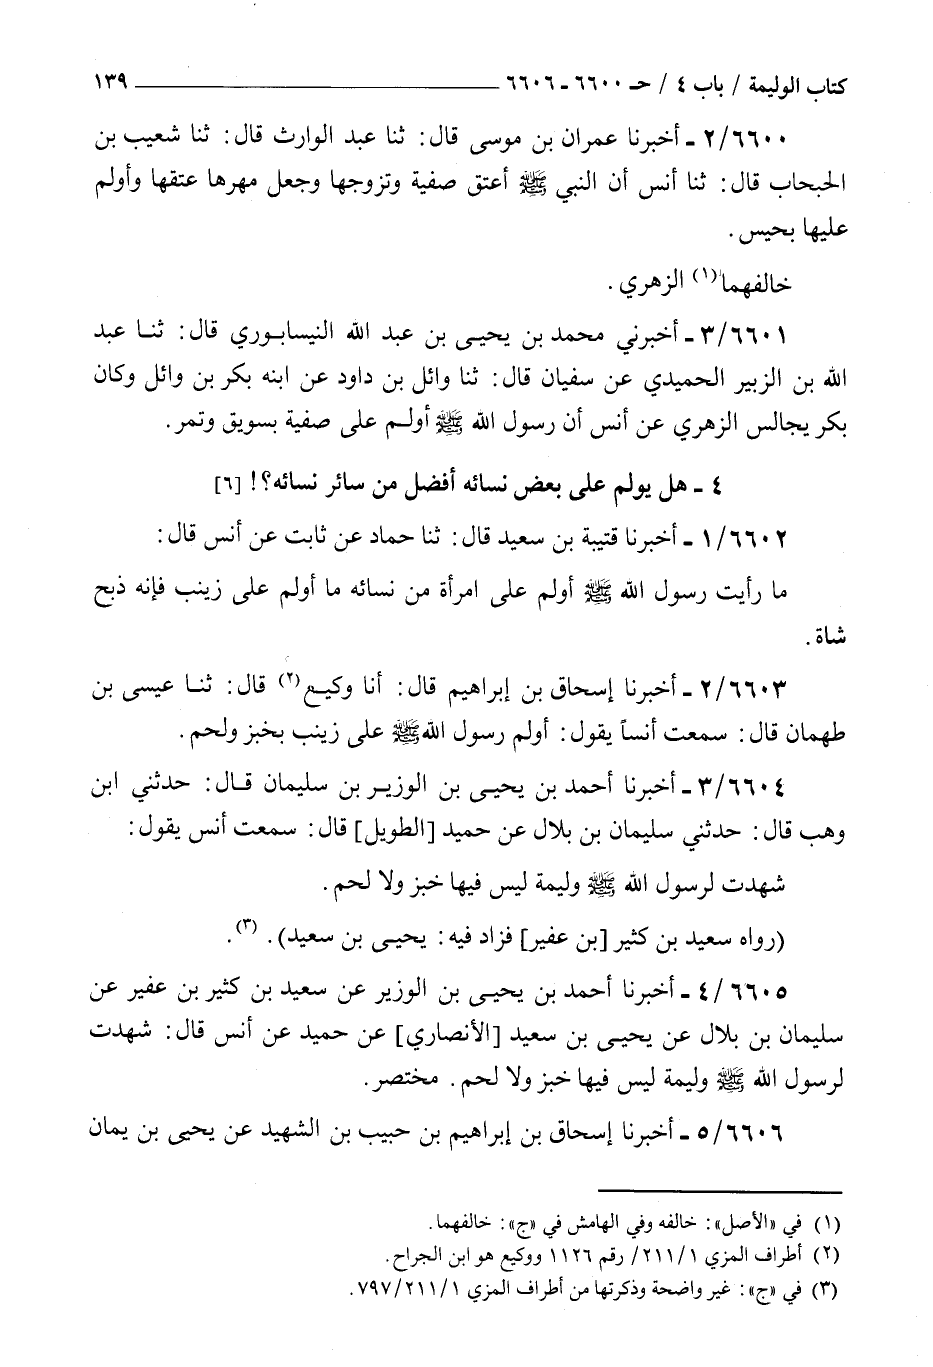 كتاب الوليمة / باب ٤ / حـ ٦٦٠٠ ـ ٦٦٠٦ ١٣٩
٢/٦٦٠٠ ـ أخبرنا عمران بن موسى قال: ثنا عبد الوارث قال: ثنا شعيب بن
الحبحاب قال: ثنا أنس أن النبي ﷺ أعتق صفية وتزوجها وجعل مهرها عتقها وأولم
عليها بحيس.
خالفهما(١) الزهري.
٣/٦٦٠١ ـ أخبرني محمد بن يحيى بن عبد الله النيسابوري قال: ثنا عبد
الله بن الزبير الحميدي عن سفيان قال: ثنا وائل بن داود عن ابنه بكر بن وائل وكان
بكر يجالس الزهري عن أنس أن رسول الله ﷺ أولم على صفية بسويق وتمر.
٤ ـ هل يولم على بعض نسائه أفضل من سائر نسائه؟! [٦]
١/٦٦٠٢ ـ أخبرنا قتيبة بن سعيد قال: ثنا حماد عن ثابت عن أنس قال:
ما رأيت رسول الله ﷺ أولم على امرأة من نسائه ما أولم على زينب فإنه ذبح
شاة.
٢/٦٦٠٣ ـ أخبرنا إسحاق بن إبراهيم قال: أنا وكيع(٢) قال: ثنا عيسى بن
طهمان قال: سمعت أنساً يقول: أولم رسول الله ﷺ على زينب بخبز ولحم.
٣/٦٦٠٤ ـ أخبرنا أحمد بن يحيى بن الوزير بن سليمان قال: حدثني ابن
وهب قال: حدثني سليمان بن بلال عن حميد [الطويل] قال: سمعت أنس يقول:
شهدت لرسول الله ﷺ وليمة ليس فيها خبز ولا لحم.
(رواه سعيد بن كثير [بن عفير] فزاد فيه: يحيى بن سعيد).(٣).
٤/٦٦٠٥ ـ أخبرنا أحمد بن يحيى بن الوزير عن سعيد بن كثير بن عفير عن
سليمان بن بلال عن يحيى بن سعيد [الأنصاري] عن حميد عن أنس قال: شهدت
لرسول الله ﷺ وليمة ليس فيها خبز ولا لحم. مختصر.
٥/٦٦٠٦ ـ أخبرنا إسحاق بن إبراهيم بن حبيب بن الشهيد عن يحيى بن يمان
(١) في «الأصل»: خالفه وفي الهامش في «ج»: خالفهما.
(٢) أطراف المزي ٢١١/١/ رقم ١١٢٦ ووكيع هو ابن الجراح.
(٣) في «ج»: غير واضحة وذكرتها من أطراف المزي ٧٩٧/٢١١/١.